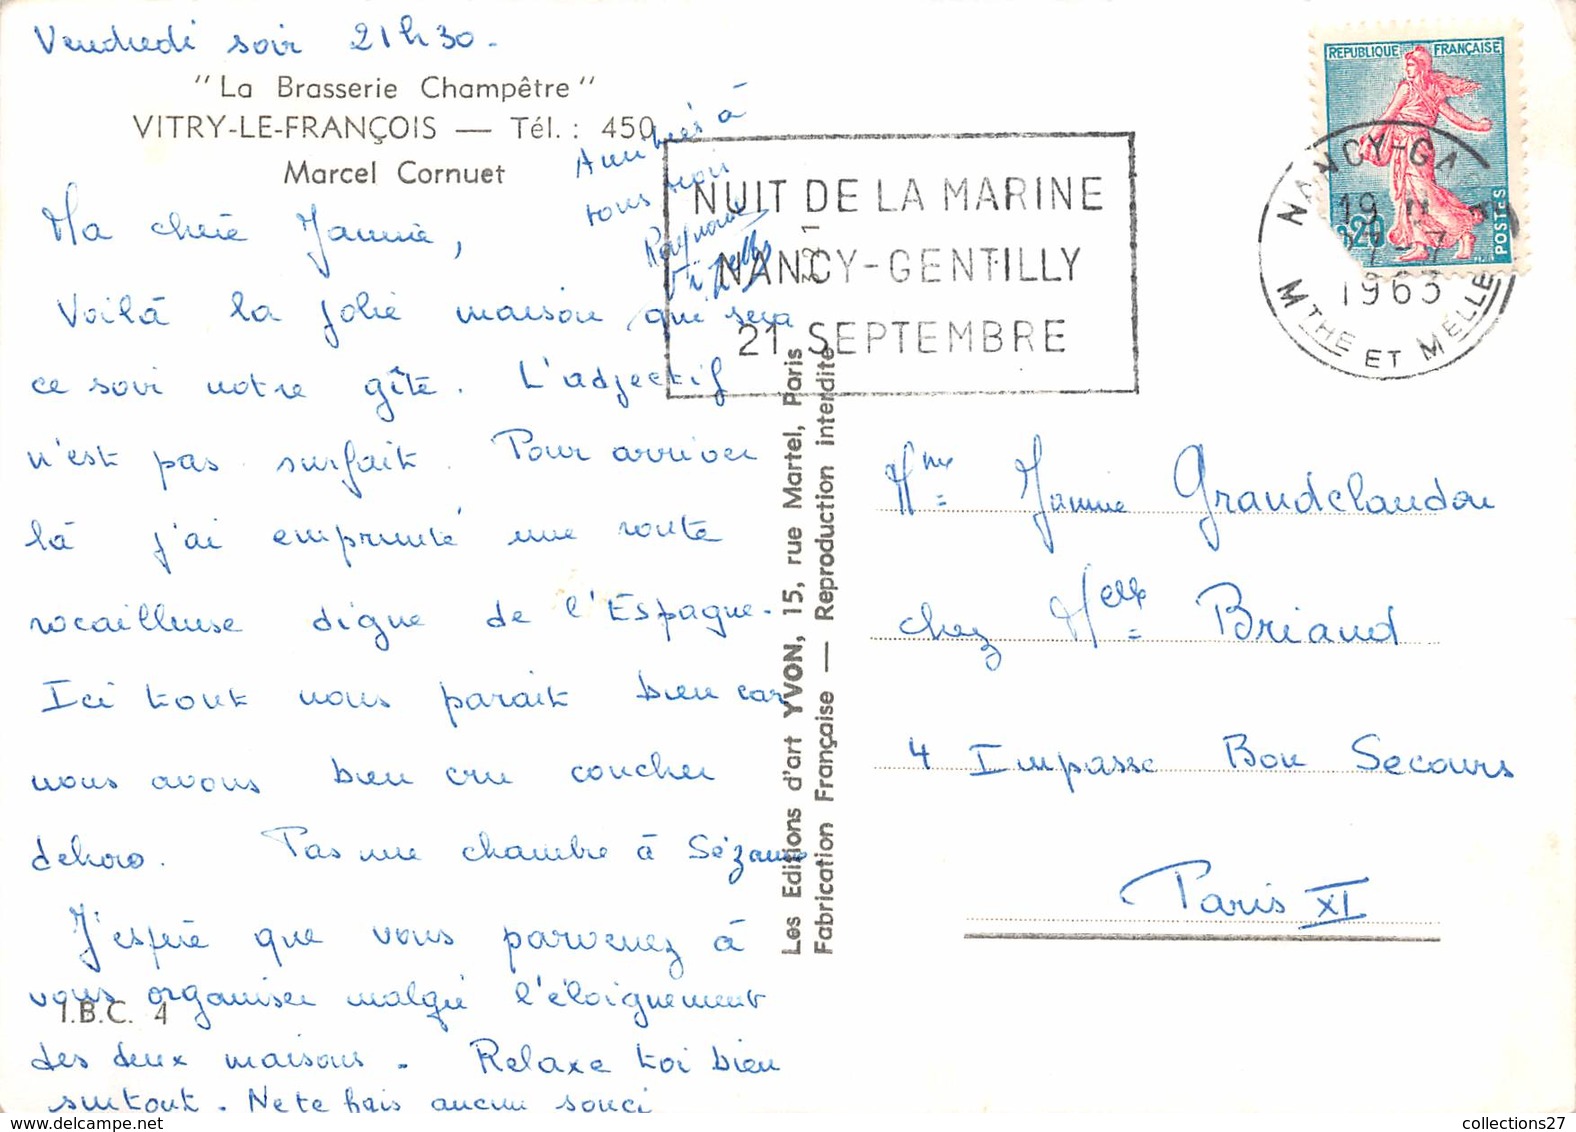 Vendredi soir 21h30.
"La Brasserie Champêtre"
VITRY-LE-FRANÇOIS — Tél. : 450
Marcel Cornuet
Ma chère Jannie,
Voilà la jolie maison qui sera
ce soir notre gîte. L'adjectif
n'est pas surfait. Pour arriver
là j'ai emprunté une route
rocailleuse digne de l'Espagne.
Ici tout nous parait bien car
nous avons bien cru coucher
dehors. Pas une chambre à Sézanne
J'espère que vous parvenez à
vous organiser malgré l'éloignement
des deux maisons. Relaxe toi bien
surtout. Ne te fais aucun souci
I.B.C. 4
Amitiés à
tous
Les Editions d'art YVON, 15, rue Martel, Paris
Fabrication Française — Reproduction interdite
NUIT DE LA MARINE
NANCY-GENTILLY
21 SEPTEMBRE
REPUBLIQUE FRANÇAISE
0,20
POSTES
NANCY-GARE
19 H
1963
MTHE ET MELLE
Mme Jannie Grandclaudon
chez Melle Briand
4 Impasse Bon Secours
Paris XI
collections27